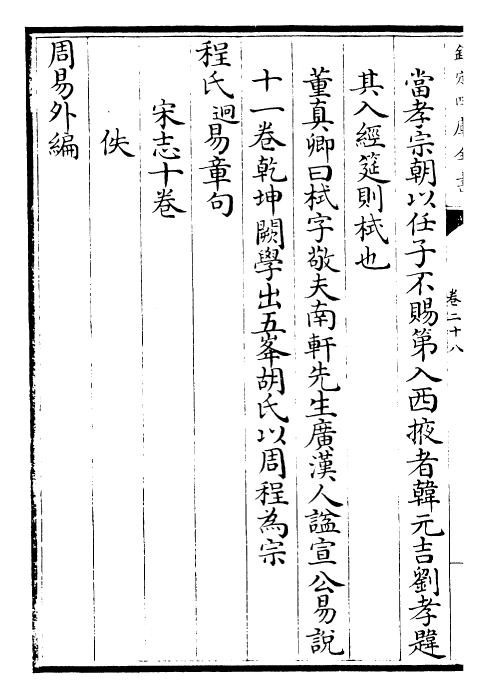 欽定四庫全書
卷二十八
當孝宗朝以任子不賜第入西掖者韓元吉劉孝韙
其入經筵則栻也
董真卿曰栻字敬夫南軒先生廣漢人諡宣公易說
十一卷乾坤闕學出五峯胡氏以周程為宗
程氏迥易章句
宋志十卷
佚
周易外編